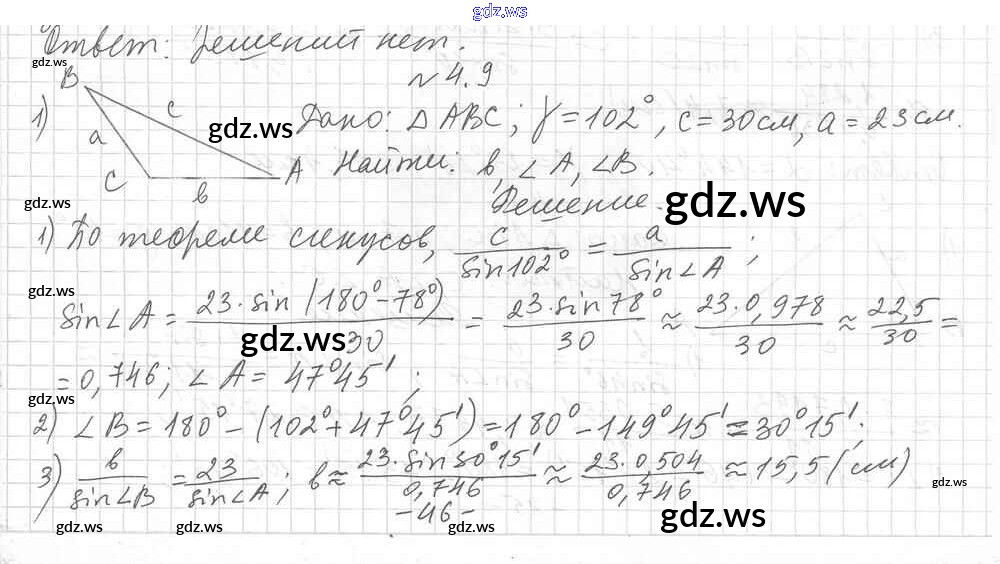 gdz.ws
Ответ: решений нет.
gdz.ws
№ 4.9
1) B a c C b A
gdz.ws
Дано: △ ABC; γ = 102°, c = 30 см, a = 23 см.
Найти: b, ∠A, ∠B.
gdz.ws
Решение.
gdz.ws
1) По теореме синусов, c/sin102° = a/sin∠A ;
gdz.ws
sin∠A = 23·sin(180°−78°)/30 = 23·sin78°/30 ≈ 23·0,978/30 ≈ 22,5/30 =
gdz.ws
= 0,746; ∠A = 47°45′ ;
gdz.ws
2) ∠B = 180° − (102° + 47°45′) = 180° − 149°45′ = 30°15′;
3) b/sin∠B = 23/sin∠A ; b ≈ 23·sin30°15′/0,746 ≈ 23·0,504/0,746 ≈ 15,5 (см)
gdz.ws
-46-
gdz.ws gdz.ws gdz.ws gdz.ws gdz.ws